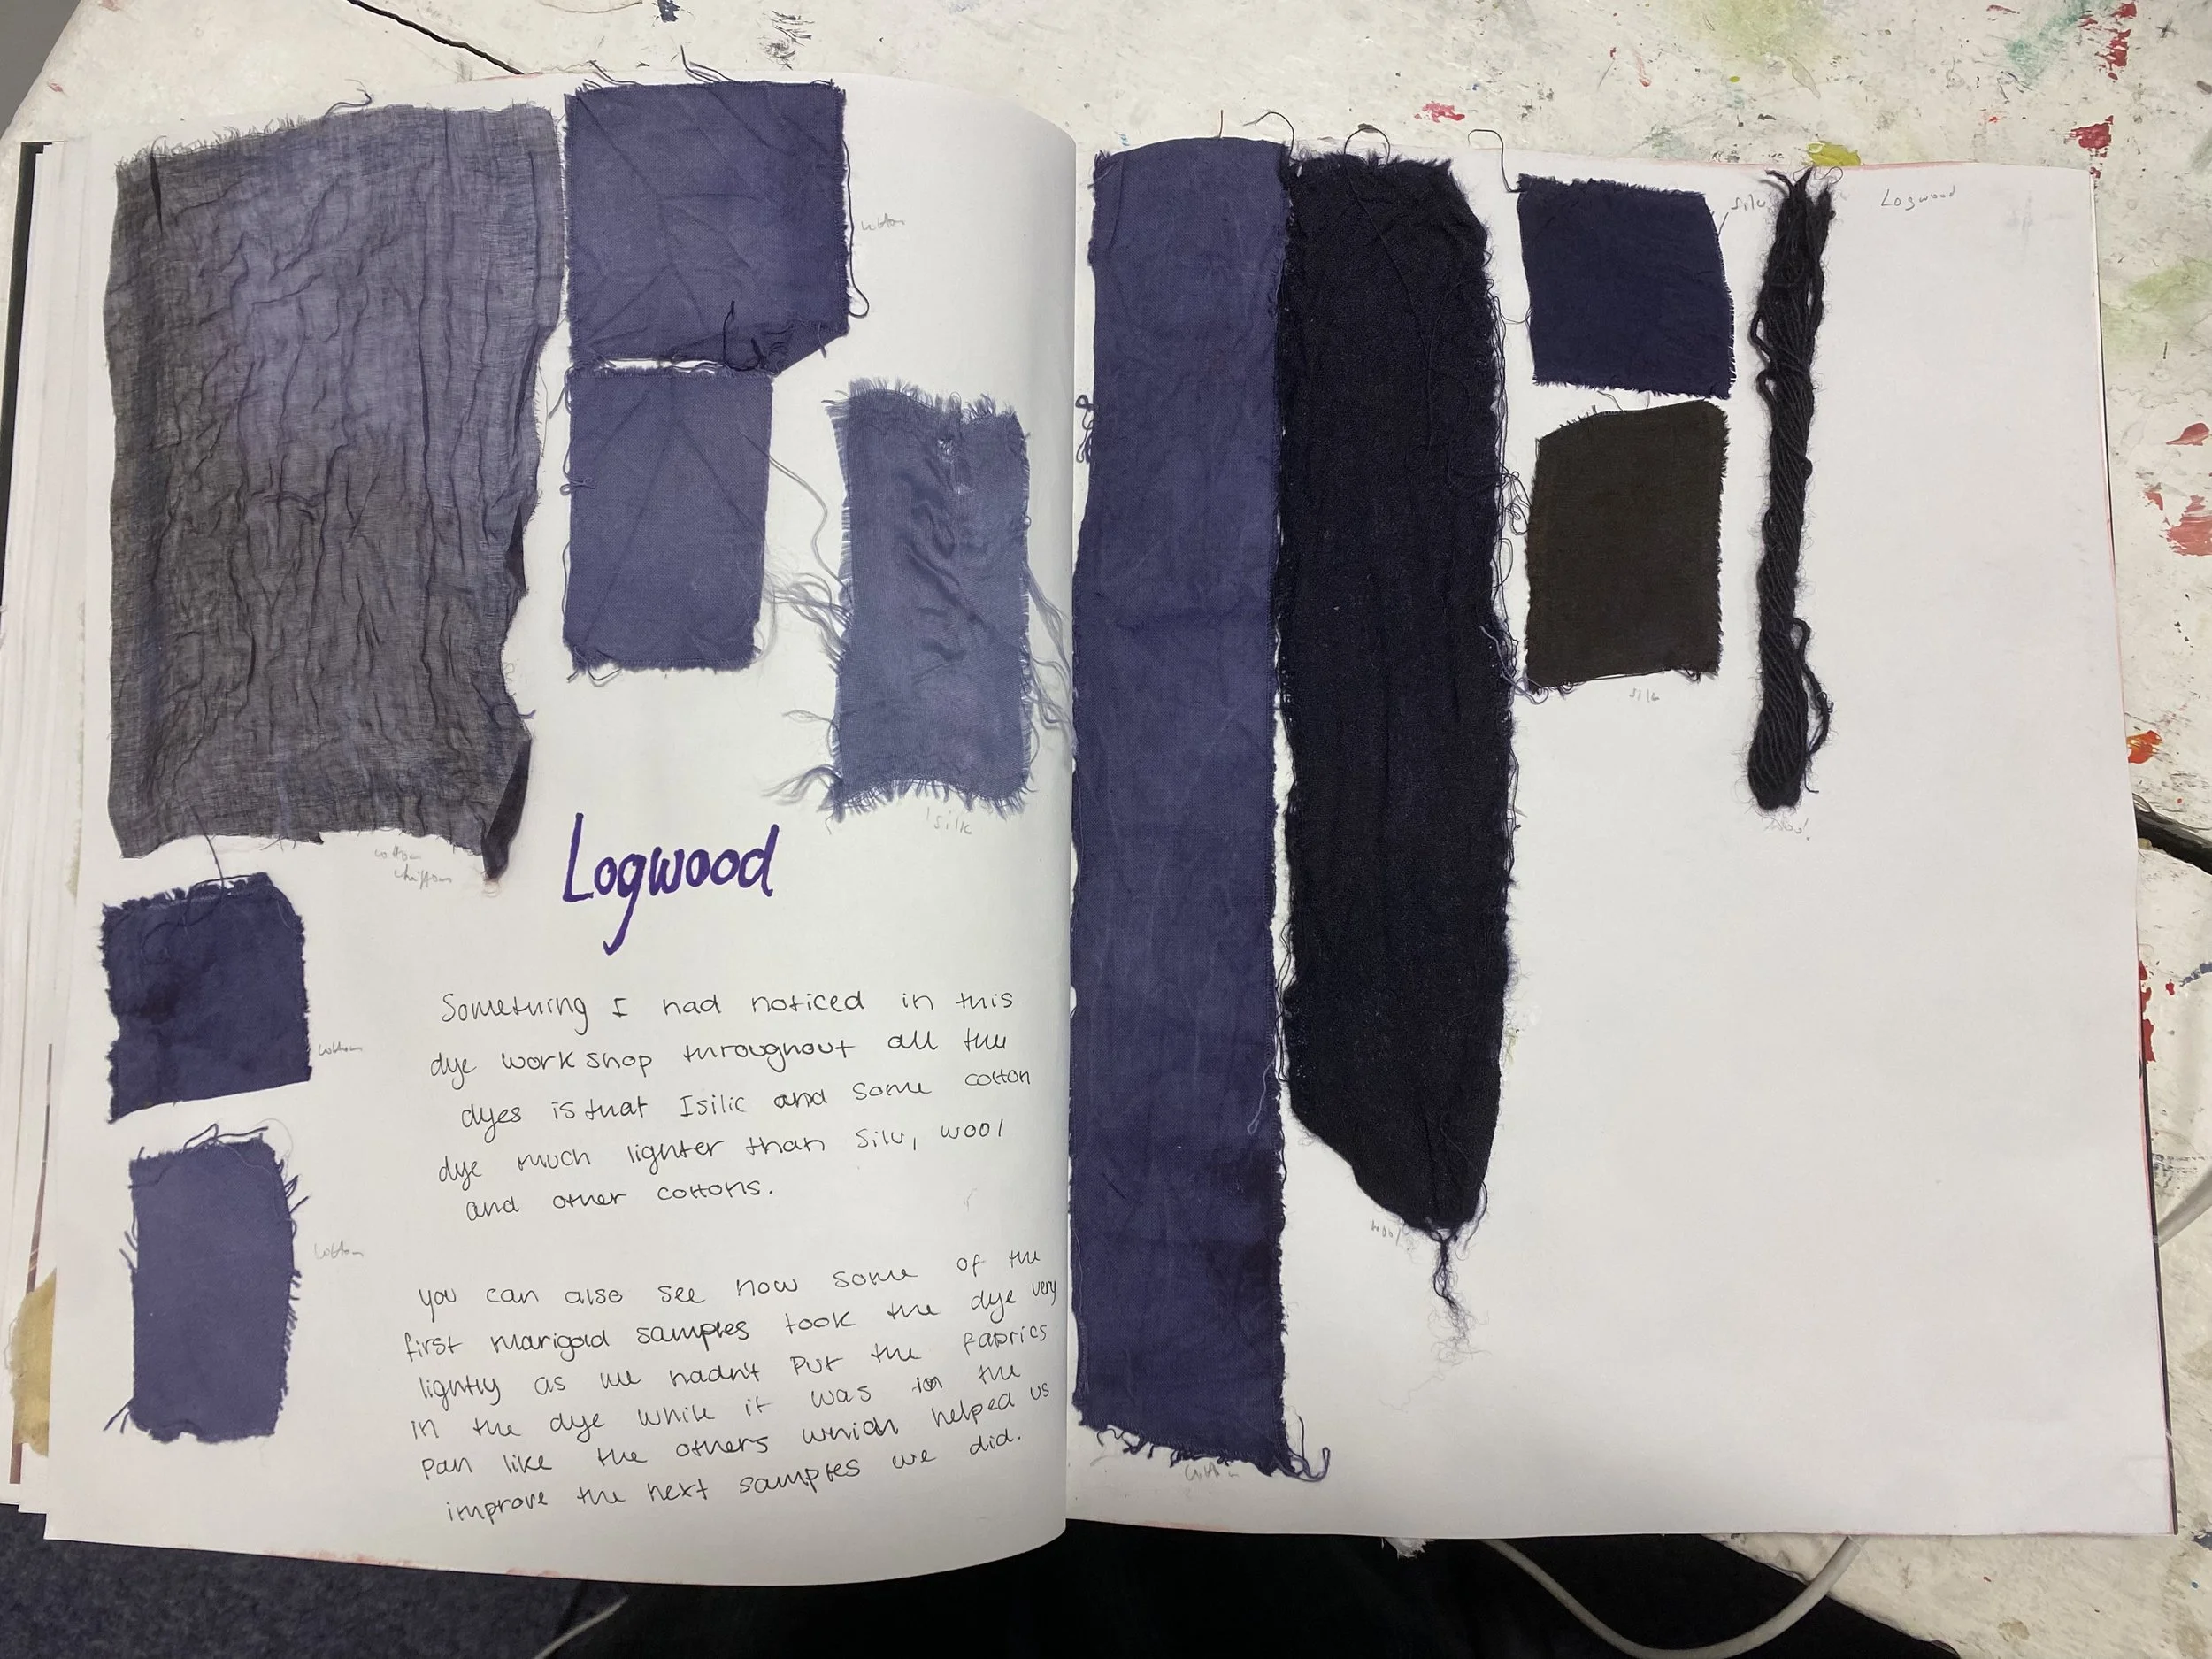 cotton
Isilk
cotton
chiffon
Logwood
cotton
cotton
Something I had noticed in this
dye workshop throughout all the
dyes is that Isilk and some cotton
dye much lighter than silk, wool
and other cottons.
you can also see how some of the
first marigold samples took the dye very
lightly as we hadn't put the fabrics
in the dye while it was in the
pan like the others which helped us
improve the next samples we did.
silk
Logwood
silk
wool
wool
cotton